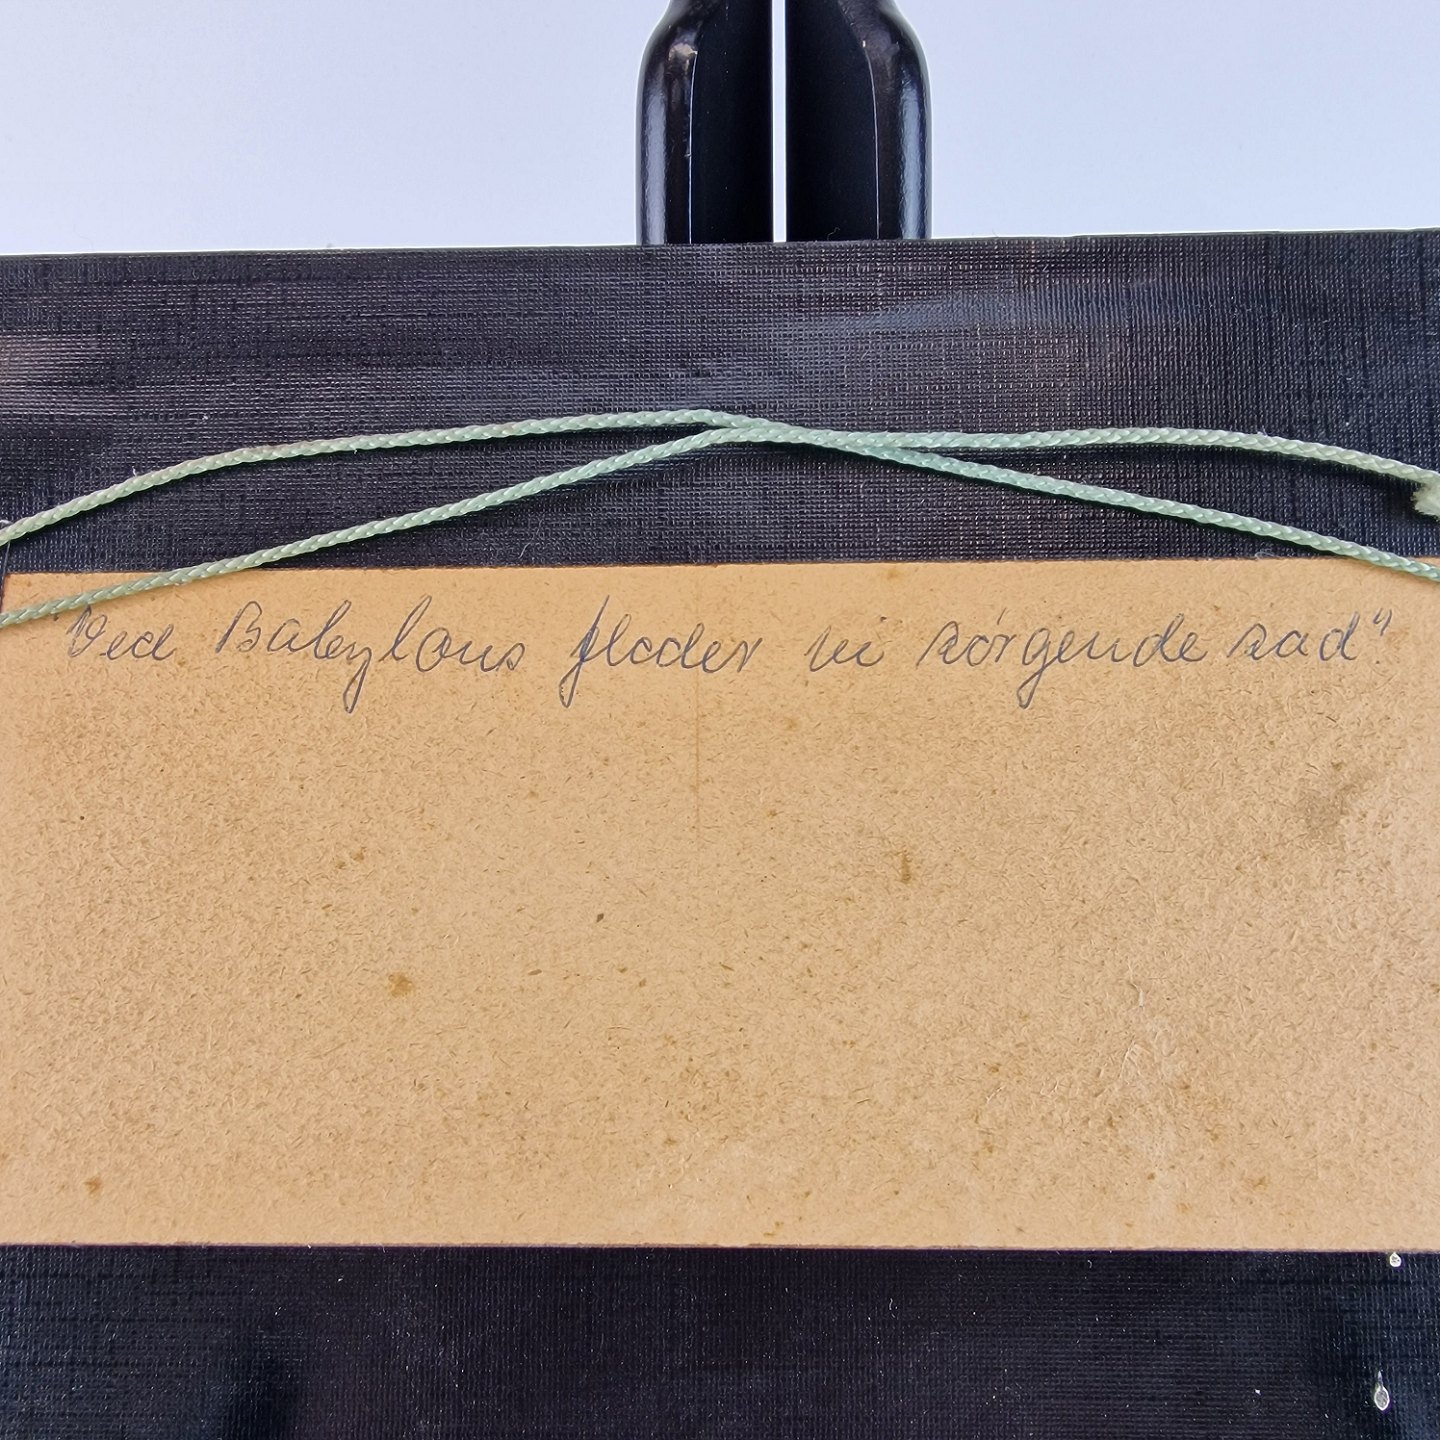 Ved Babylons floder vi sørgende sad"